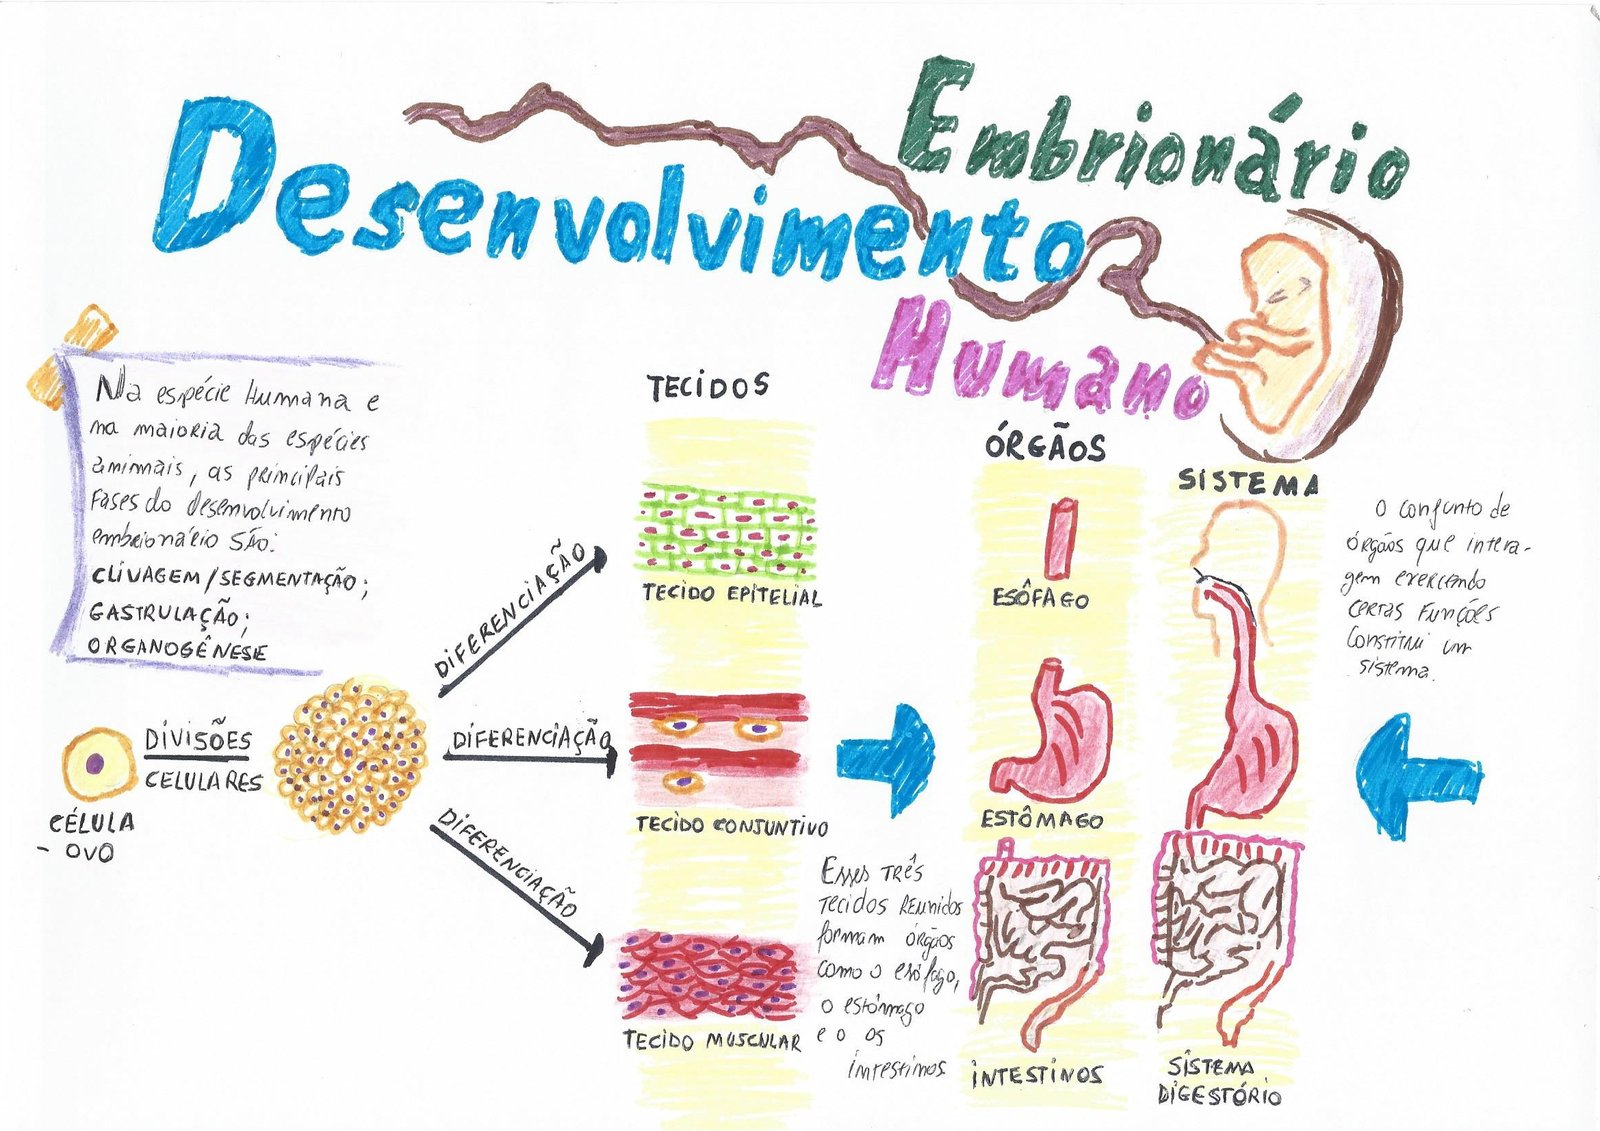 Desenvolvimento
Embrionário
Humano
Na espécie Humana e
na maioria das espécies
animais, as principais
fases do desenvolvimento
embrionário são:
CLIVAGEM/SEGMENTAÇÃO;
GASTRULAÇÃO;
ORGANOGÊNESE
CÉLULA
- OVO
DIVISÕES
CELULARES
DIFERENCIAÇÃO
DIFERENCIAÇÃO
DIFERENCIAÇÃO
TECIDOS
TECIDO EPITELIAL
TECIDO CONJUNTIVO
TECIDO MUSCULAR
Esses três
tecidos reunidos
formam órgãos
como o esôfago,
o estômago
e o os
intestinos
ÓRGÃOS
ESÔFAGO
ESTÔMAGO
INTESTINOS
SISTEMA
SISTEMA
DIGESTÓRIO
O conjunto de
órgãos que intera-
gem exercendo
certas funções
constitui um
sistema.